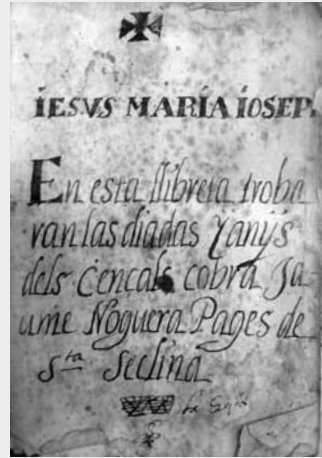 IESVS MARÍA IOSEP.
En esta llibreta troba
ran las diadas Yanÿs
dels Cençals cobra Ja-
ume Noguera Pages de
Sta Seclina